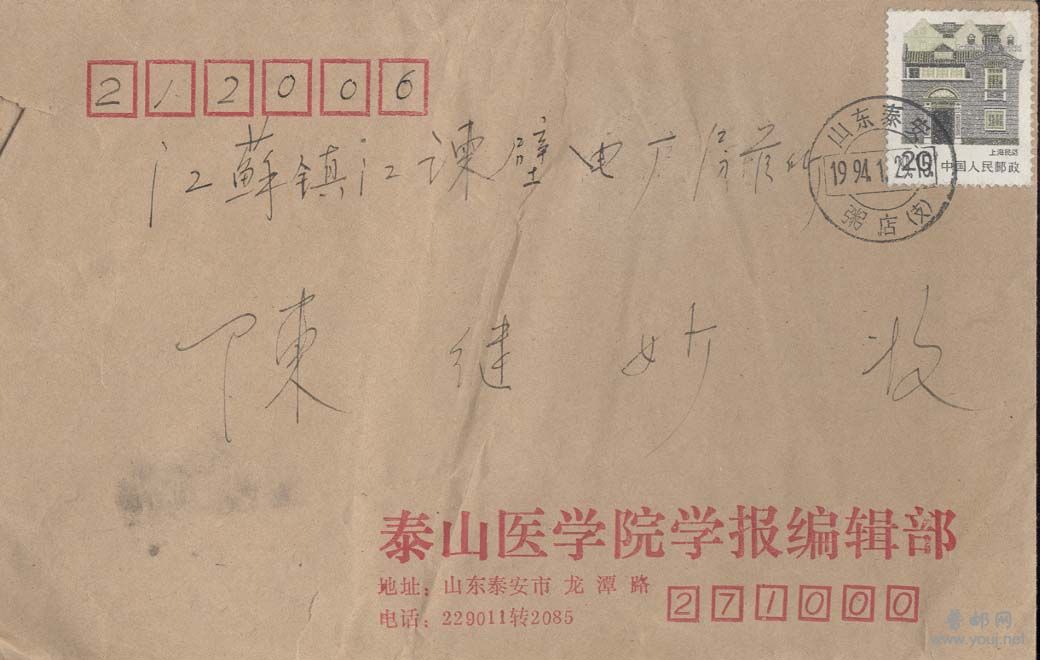 212006
江蘇镇江谏壁电厂
陳继妙 收
上海民居
20 中国人民邮政
山东泰安
1994.1.2
粥店(支)
泰山医学院学报编辑部
地址：山东泰安市 龙 潭 路
电话：229011转2085
271000
普邮网
www.youj.net